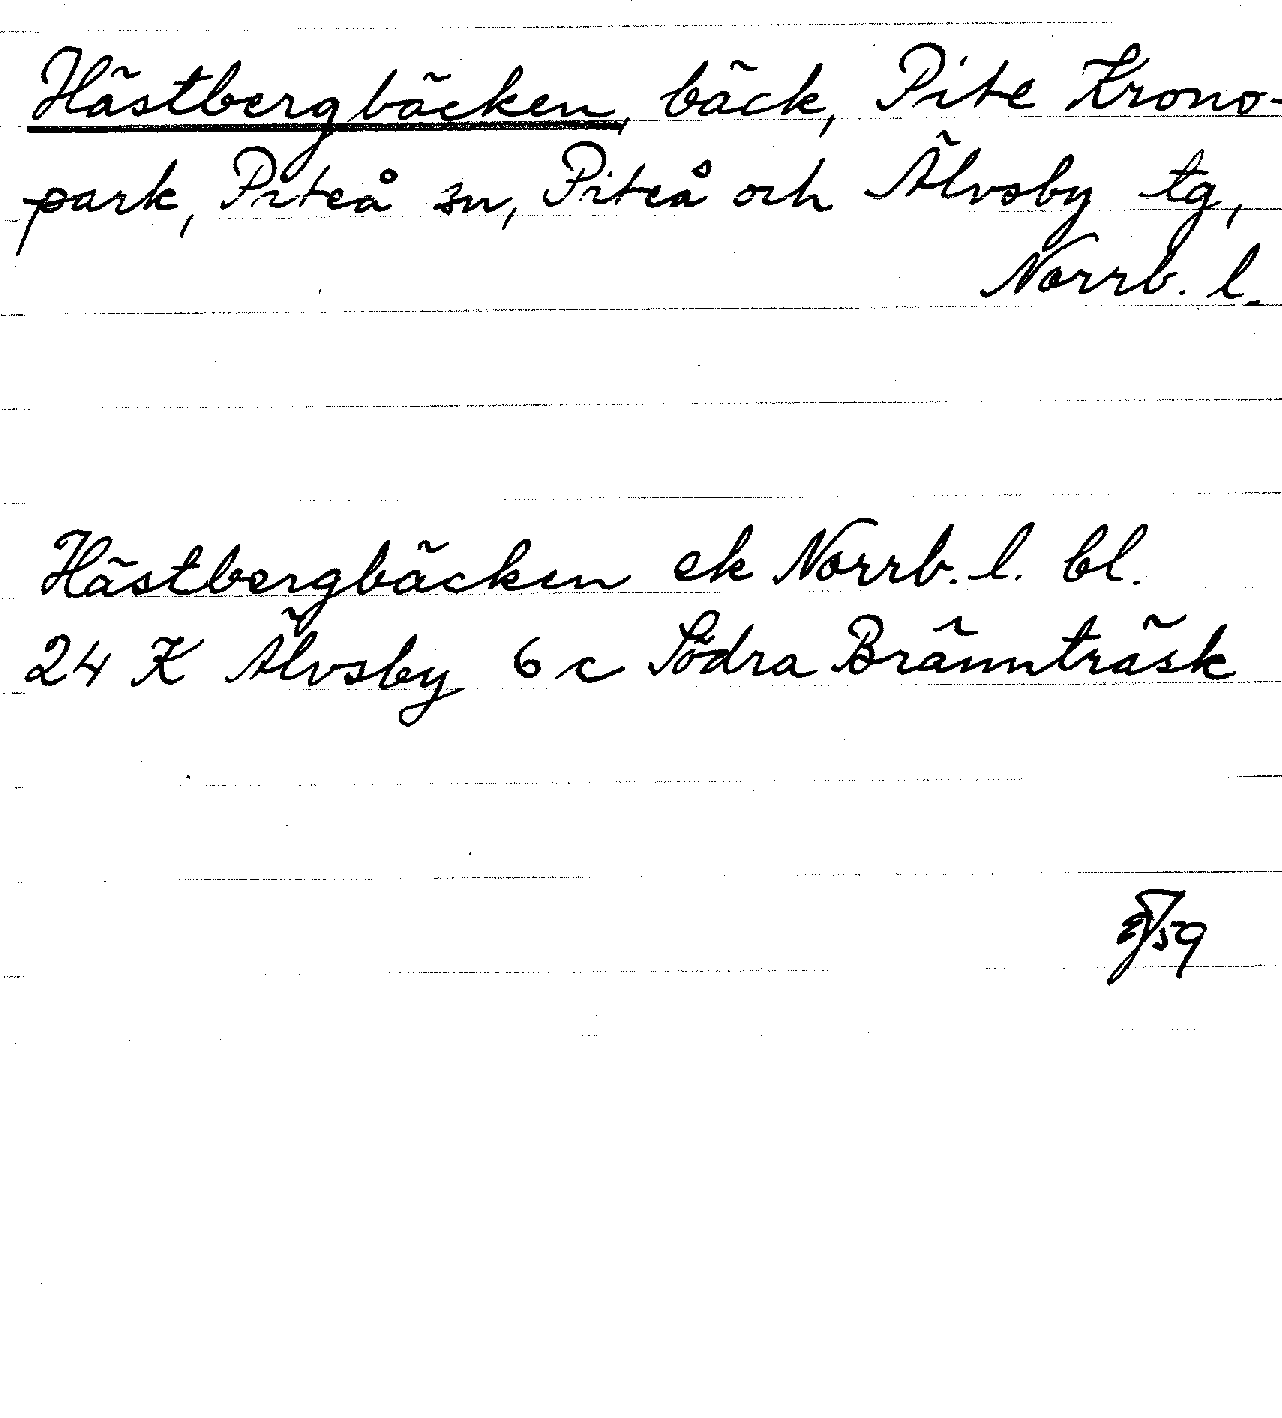 Hästbergbäcken, bäck, Pite Krono-
park, Piteå sn, Piteå och Älvsby tg,
Norrb. l.
Hästbergbäcken ek Norrb. l. bl.
24 K Älvsby 6 c Södra Brännträsk
/59